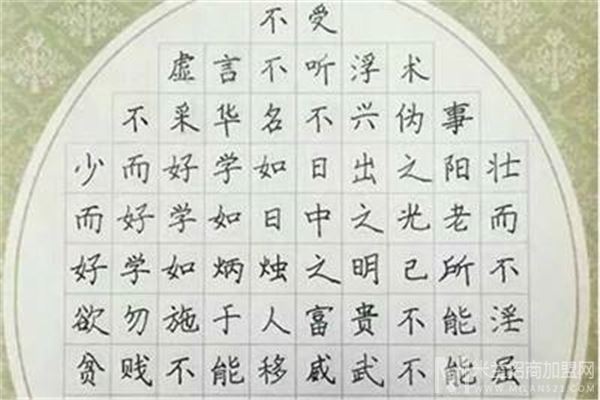 不受
虚言不听浮术
不采华名不兴伪事
少而好学如日出之阳壮
而好学如日中之光老而
好学如炳烛之明己所不
欲勿施于人富贵不能淫
贫贱不能移威武不能屈
招商加盟网